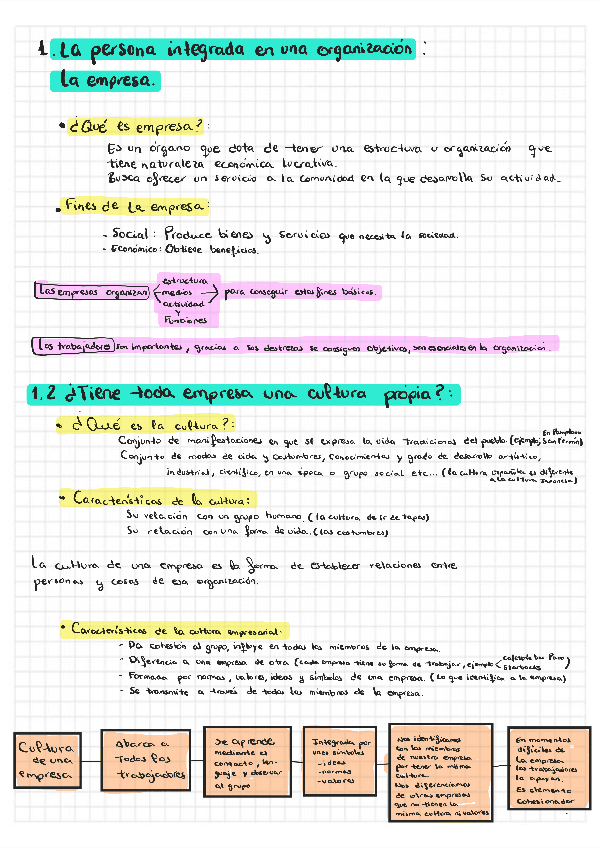 1. La persona integrada en una organización :
La empresa.
• ¿Qué es empresa?:
Es un órgano que dota de tener una estructura u organización que
tiene naturaleza económica lucrativa.
Busca ofrecer un servicio a la comunidad en la que desarrolla su actividad.
• Fines de la empresa:
- Social: Produce bienes y servicios que necesita la sociedad.
- Económico: Obtiene beneficios.
Las empresas organizan
estructura
medios
actividad
y
Funciones
para conseguir estos fines básicos.
Los trabajadores son importantes, gracias a sus destrezas se consiguen objetivos, son esenciales en la organización.
1.2 ¿Tiene toda empresa una cultura propia?:
• ¿Qué es la cultura?:
Conjunto de manifestaciones en que se expresa la vida tradicional del pueblo (ejemplo, En Pamplona San Fermín)
Conjunto de modos de vida y costumbres, conocimientos y grado de desarrollo artístico,
industrial, científico, en una época o grupo social etc... (la cultura española es diferente
a la cultura Japonesa)
• Características de la cultura:
Su relación con un grupo humano. (la cultura de ir de tapas)
Su relación con una forma de vida. (las costumbres)
La cultura de una empresa es la forma de establecer relaciones entre
personas y cosas de esa organización.
• Características de la cultura empresarial:
- Da cohesión al grupo, influye en todos los miembros de la empresa.
- Diferencia a una empresa de otra (cada empresa tiene su forma de trabajar, ejemplo Starbucks)
- Formada por normas, valores, ideas y símbolos de una empresa. (Lo que identifica a la empresa)
- Se transmite a través de todos los miembros de la empresa.
Cultura
de una
empresa
Abarca a
todos los
trabajadores
Se aprende
mediante el
contacto, len-
guaje y observar
al grupo
Integrada por
unos símbolos
- ideas
- normas
- valores
Nos identificamos
con los miembros
de nuestra empresa
por tener la misma
cultura.
Nos diferenciamos
de otras empresas
que no tienen la
misma cultura ni valores
En momentos
difíciles de
la empresa
los trabajadores
la apoyan.
Es elemento
cohesionador